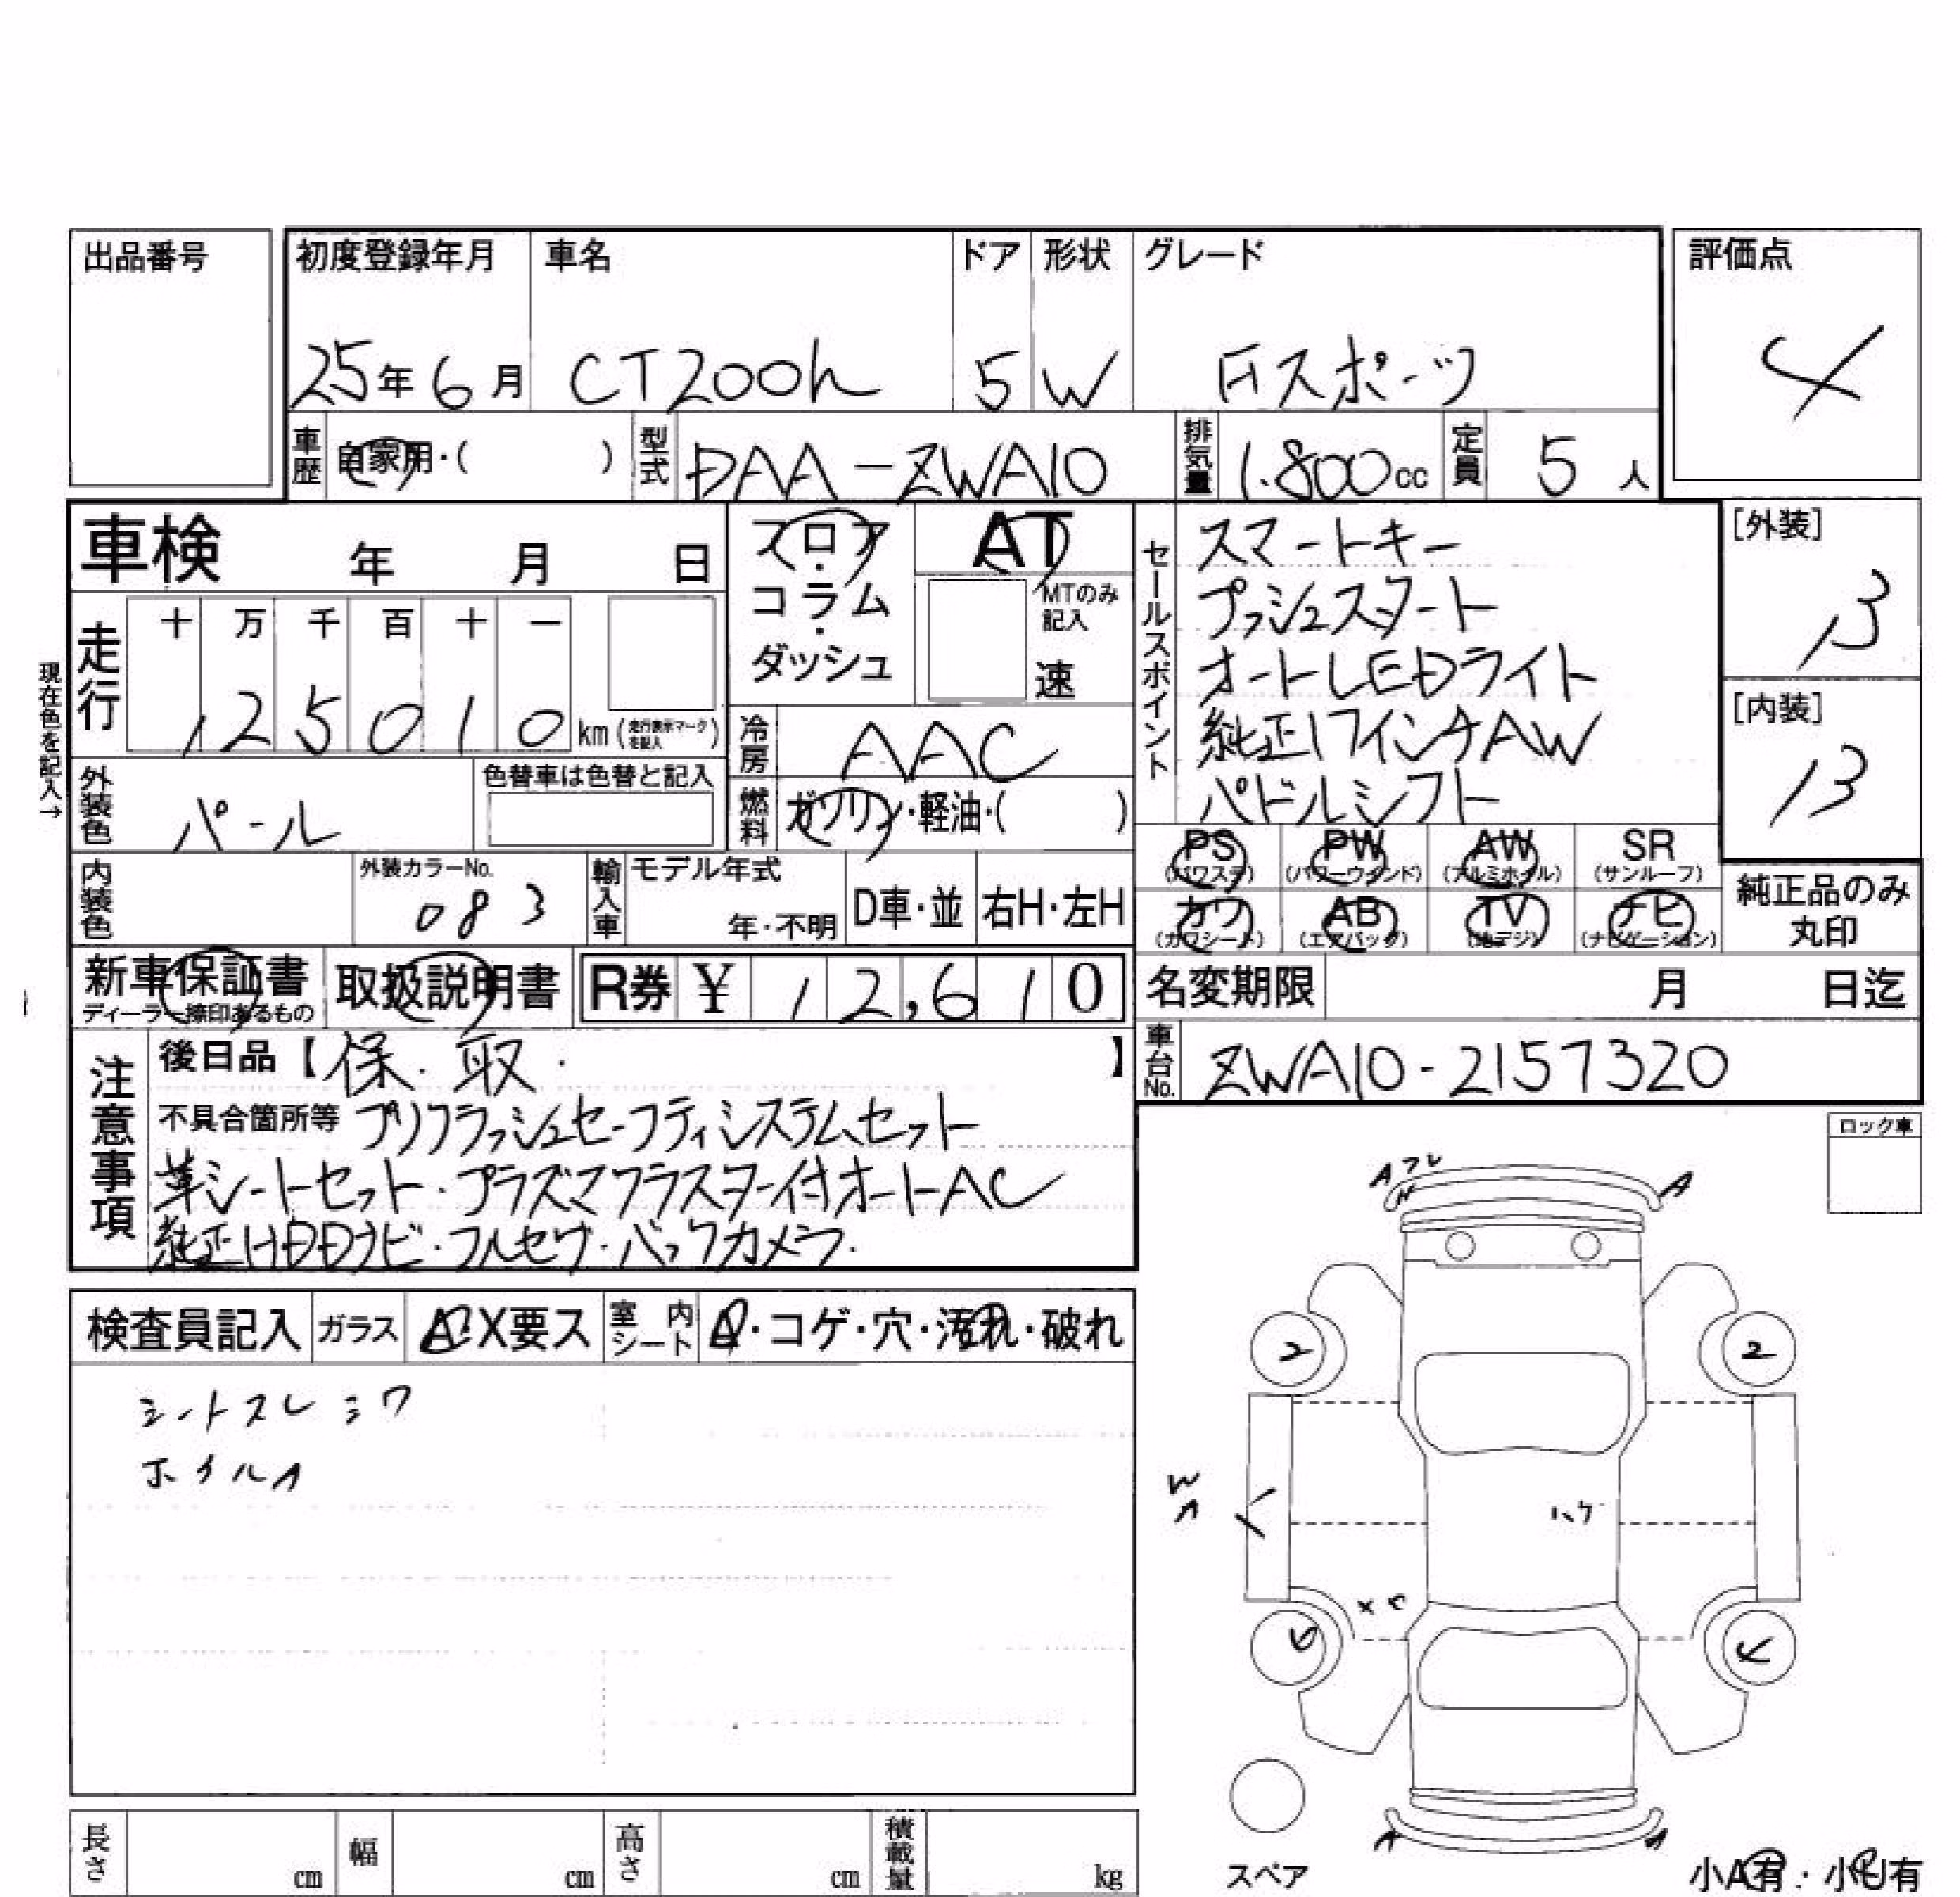 出品番号
初度登録年月 車名 ドア 形状 グレード
評価点
25年6月 CT200h 5 W Fスポーツ
4
車歴 自家用・( ) 型式 DAA-ZWA10 排気量 1.800cc 定員 5人
車検 年 月 日
フロア・コラム・ダッシュ
AT
MTのみ記入
速
セールスポイント
スマートキー
プッシュスタート
オートLEDライト
純正17インチAW
パドルシフト
[外装]
B
[内装]
B
現在色を記入→
走行 十 万 千 百 十 一
125010km(走行表示マークを記入)
冷房 AAC
外装色 パール 色替車は色替と記入
燃料 ガソリン・軽油・( )
PS (パワステ) PW (パワーウインド) AW (アルミホイル) SR (サンルーフ)
カワ (カワシート) AB (エアバッグ) TV (地デジ) ナビ (ナビゲーション)
純正品のみ丸印
内装色 外装カラーNo. 083
輸入車 モデル年式 年・不明 D車・並 右H・左H
新車保証書 ディーラー捺印あるもの 取扱説明書 R券 ¥12,610
名変期限 月 日迄
車台No. ZWA10-2157320
注意事項
後日品【保.取. 】
不具合箇所等 プリクラッシュセーフティシステムセット
革シートセット・プラズマクラスター付オートAC
純正HDDナビ・フルセグ・バックカメラ.
ロック車
検査員記入 ガラス A・X要ス 室内シート A・コゲ・穴・汚れ・破れ
シートスレ シワ
ホイルA
A フレ
A
2 2
W
A
ハケ
4
A A
スペア
小A有・小U有
長さ cm 幅 cm 高さ cm 積載量 kg